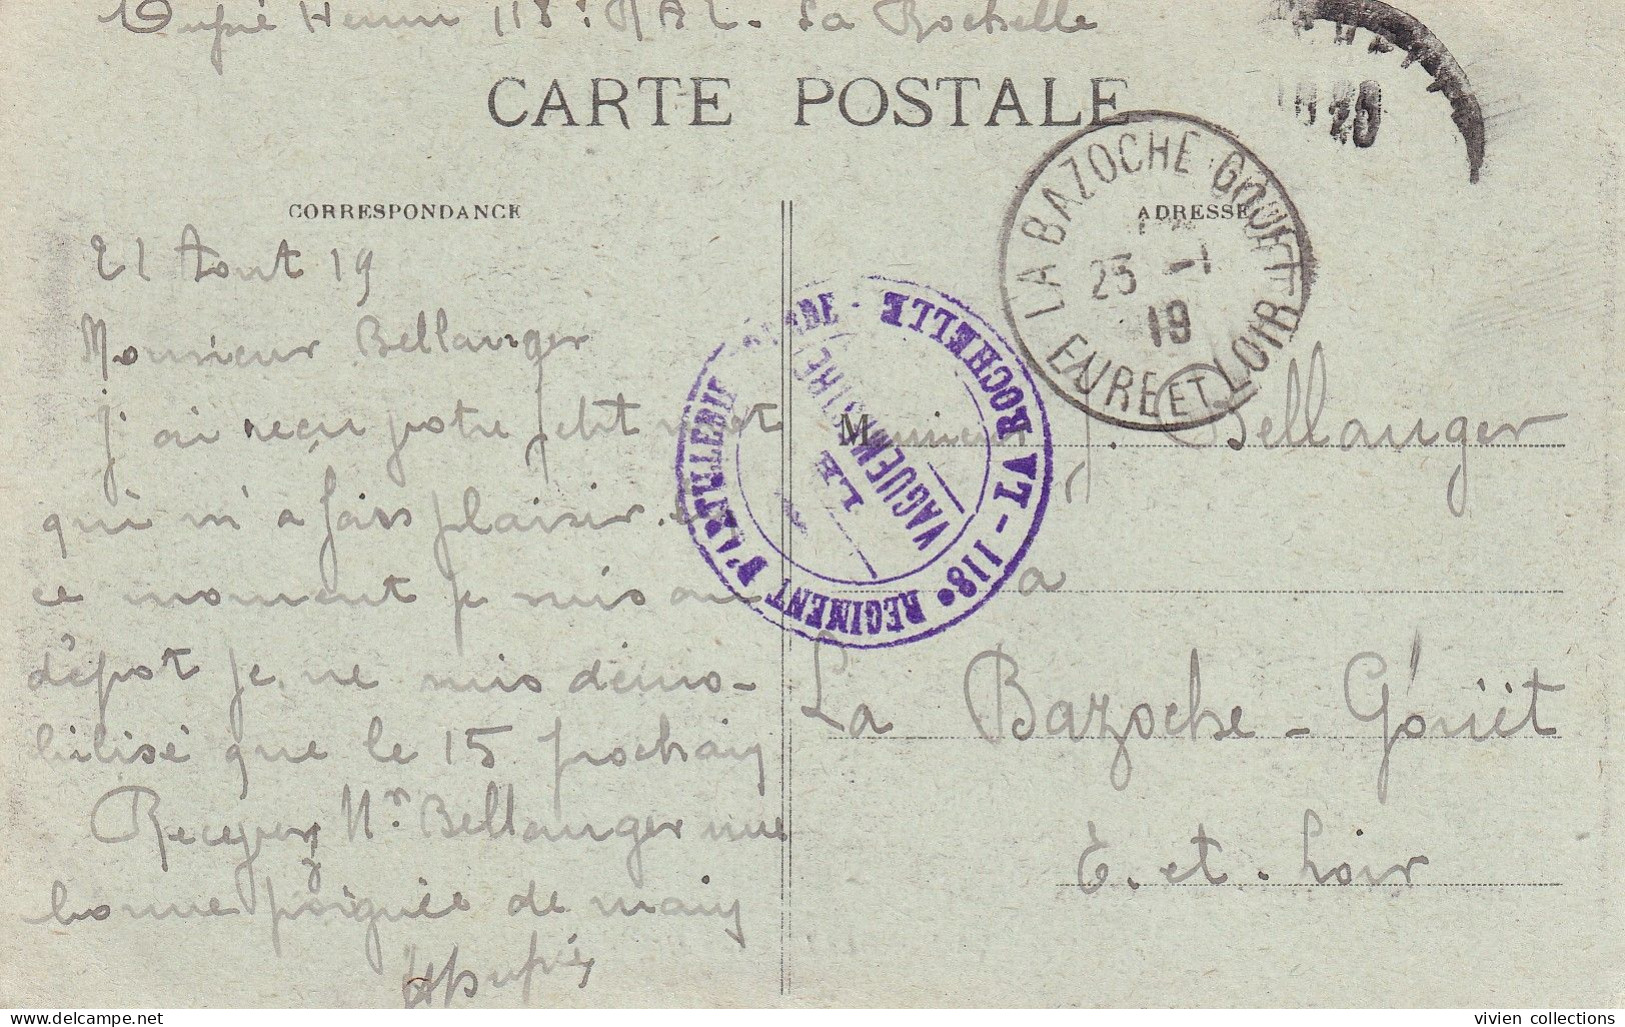 Dupré Henri 118e RAL. La Rochelle
CARTE POSTALE
CORRESPONDANCE
ADRESSE
LA BAZOCHE GOUET
23 -
19
EURE ET LOIR
20
118e REGIMENT D'ARTILLERIE LOURDE - LA ROCHELLE
LE
VAGUEMESTRE
21 Aout 19
Monsieur Bellanger
j'ai reçu votre petit mot
qui m'a fais plaisir.
ce moment je suis au
dépôt je ne suis démo-
bilisé que le 15 prochain
Recevez Mr. Bellanger une
bonne poignée de main
HDupré
Monsieur J. Bellanger
a
La Bazoche-Gouët
E. et. Loir
vivien collections